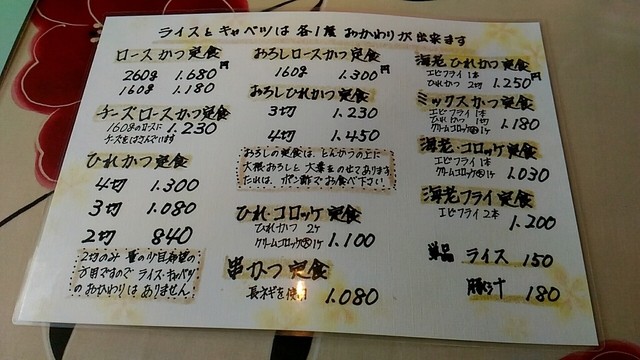 ライスとキャベツは各1度おかわりが出来ます
ロースかつ定食
260g 1.680円
160g 1.180
チーズロースかつ定食
160gのロースに 1.230
チーズをはさんでいます
ひれかつ定食
4切 1.300
3切 1.080
2切 840
2切のみ 量の少目希望の
方用ですので ライス・キャベツ
のおかわりは ありません
おろしロースかつ定食
160g 1.300円
おろしひれかつ定食
3切 1.230
4切 1.450
おろしの定食は、とんかつの上に
大根おろしと 大葉をのせてあります
たれは、ポン酢でお食べ下さい
ひれ・コロッケ定食
ひれかつ 2ケ
クリームコロッケ 1ケ 1.100
串かつ定食
長ネギを使用 1.080
海老ひれかつ定食
エビフライ 1本
ひれかつ 2切 1.250円
ミックスかつ定食
エビフライ 1本
ひれかつ 1切 1.180
クリームコロッケ 1ケ
海老・コロッケ定食
エビフライ 1本
クリームコロッケ 1ケ 1.030
海老フライ定食
エビフライ 2本
1.200
単品 ライス 150
豚汁 180